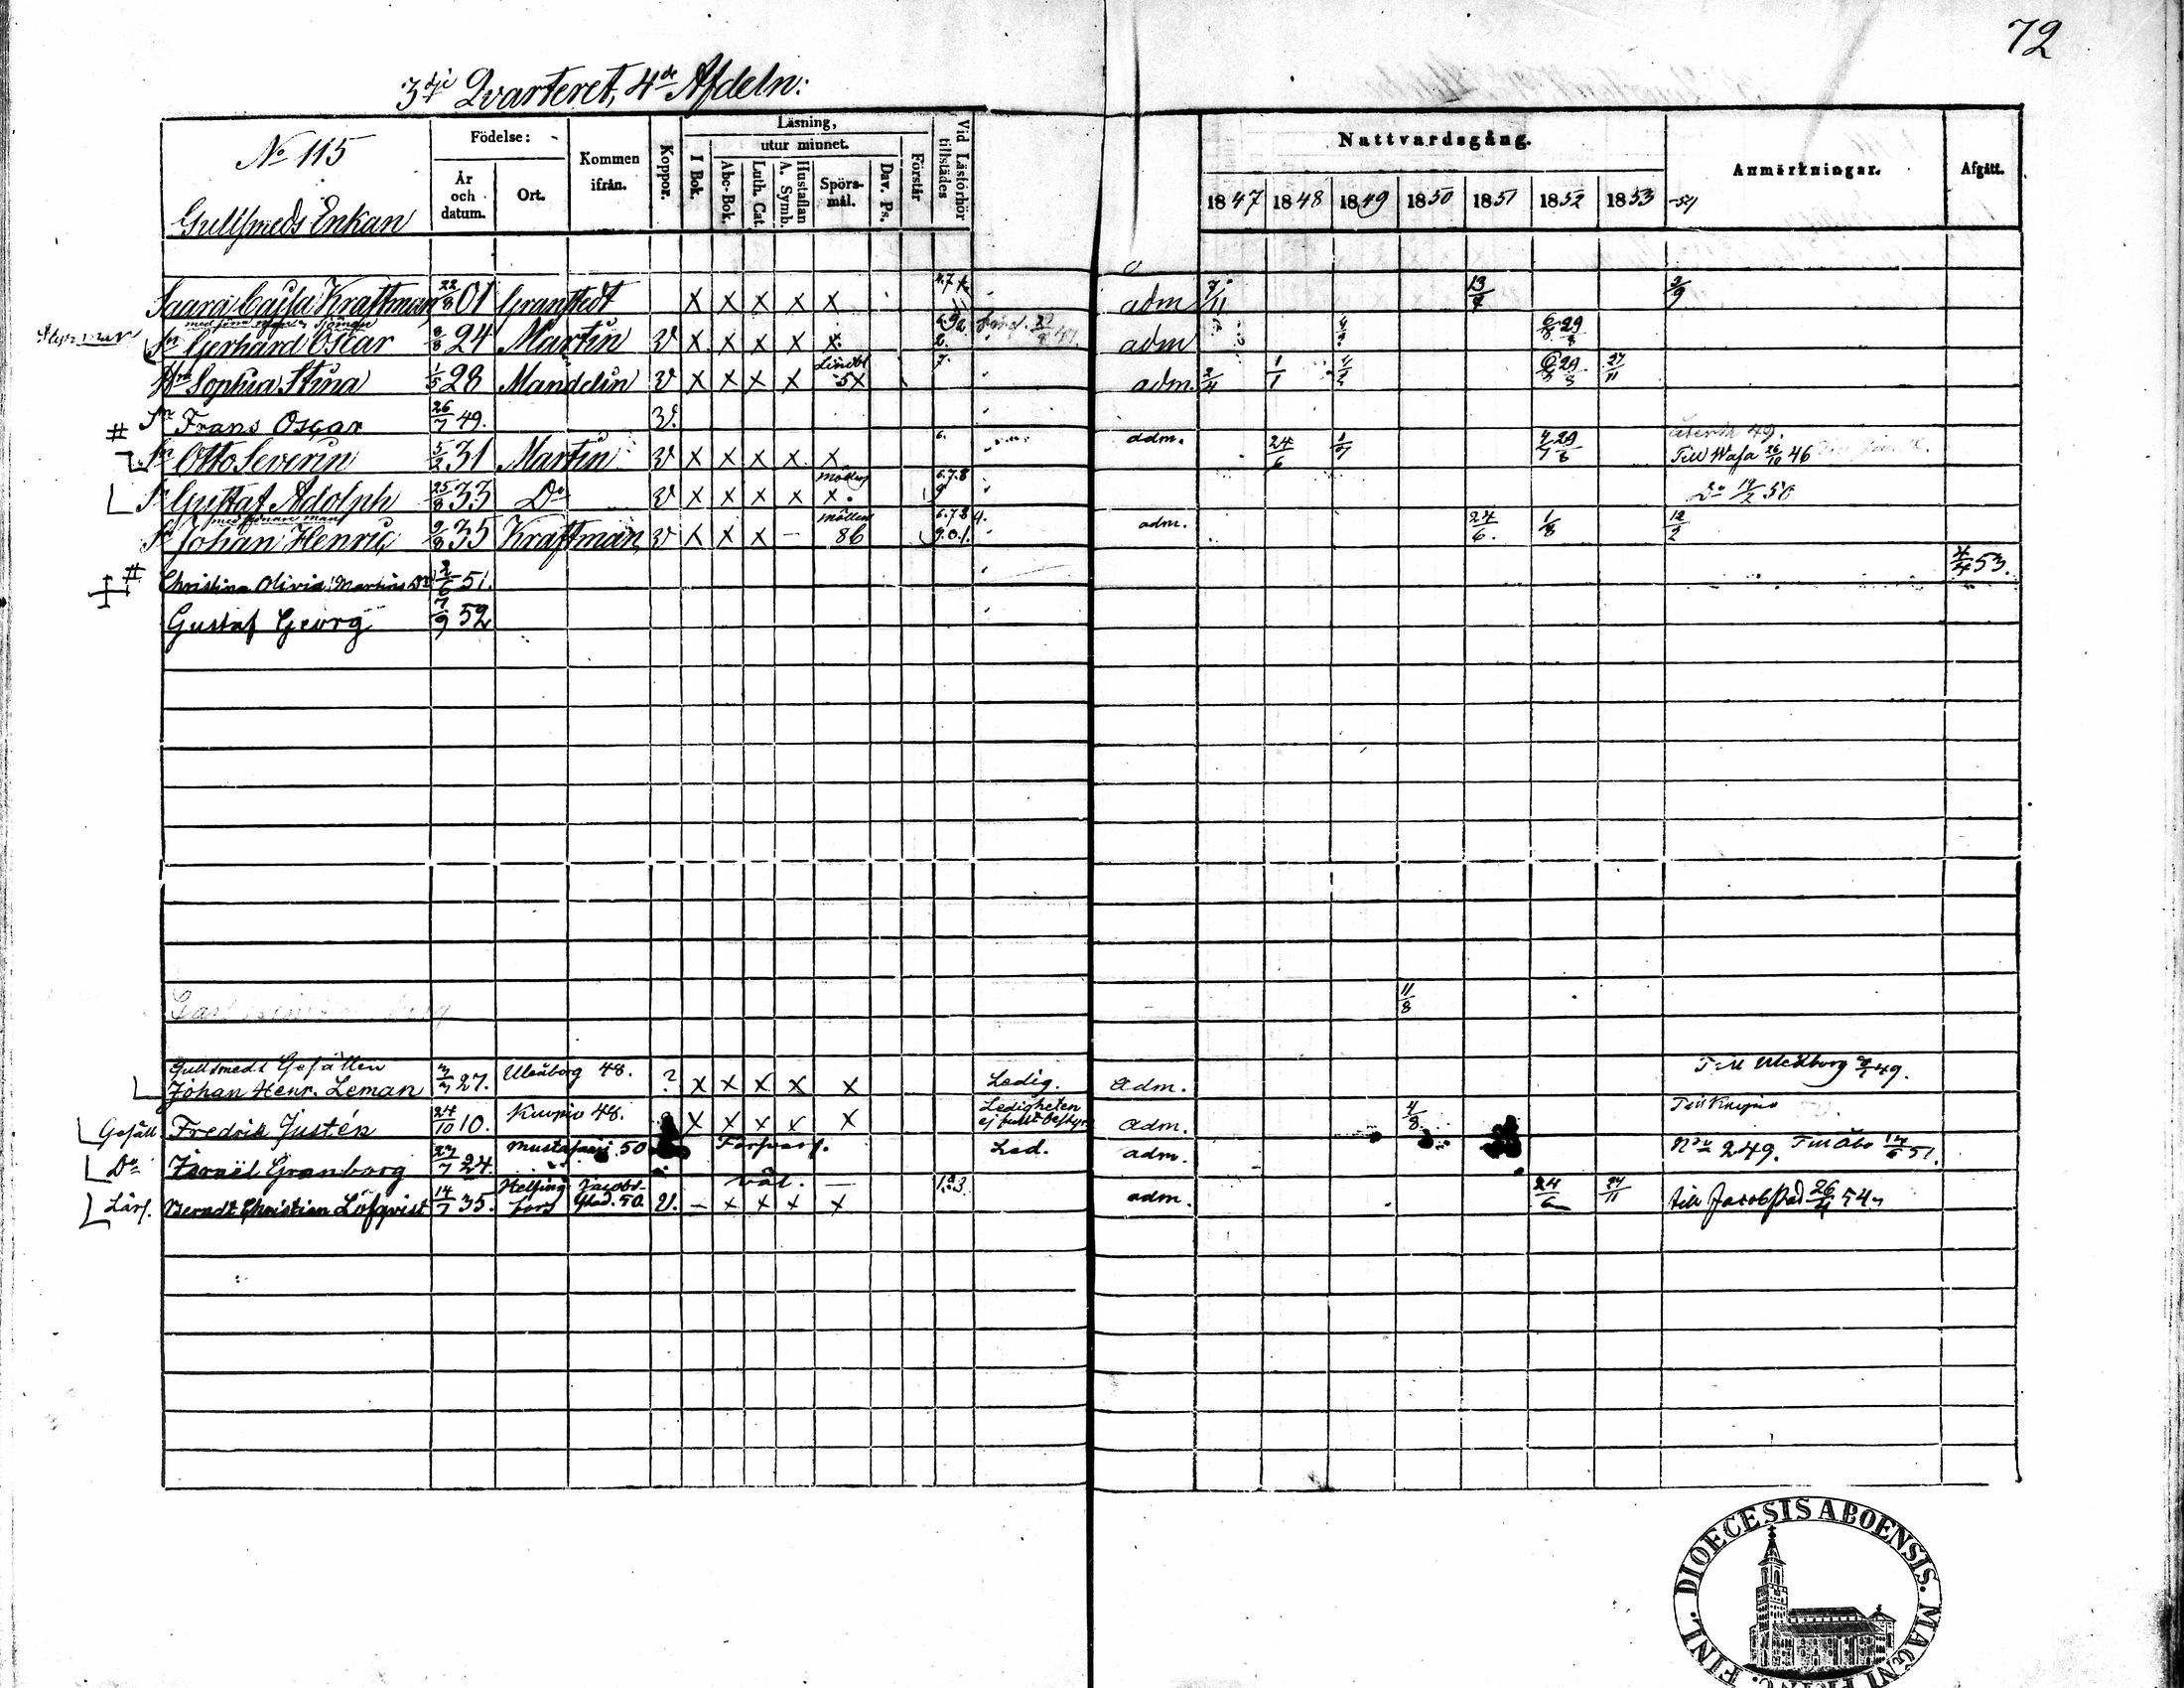 72
3dje Qvarteret, 4de Afdeln:
No 115
Gullsmeds Enkan
Födelse:
År och datum.
Ort.
Kommen ifrån.
Koppor.
Läsning,
utur minnet.
I Bok.
Abc-Bok.
Luth. Cat.
Hustaflan A. Symb.
Spörsmål.
Dav. Ps.
Förstår
Vid Läsförhör tillstädes
Nattvardsgång.
1847 1848 1849 1850 1851 1852 1853 -54
Anmärkningar.
Afgått.
Saara Cajsa Kraftman 22/8 01 Granstedt X X X X X adm 13/7 2/9
med förra mannen Sjöman
Sn Gerhard Oscar 8/8 24 Martin V X X X X X adm
Hu Sophia Stina 1/5 28 Mandelin V X X X X 5X adm. 2/4 1/1 27/11
Sn Frans Oscar 26/7 49. V.
# Sn Otto Severin 5/2 31 Martin V X X X X X 6. adm. 24/6 1/7 Till Wasa 26/10 46
Sn Gustaf Adolph 25/8 33 Do V X X X X X 6.7.8 9 Do 14/2 50
med senare man
Sn Johan Henric 9/8 35 Kraftman V X X X – 86 6.7.8 9.0.1. adm. 24/6. 1/8 12/2
# Christina Olivia (Martins Dr) 2/6 51. 4/4 53.
Gustaf Georg 7/9 52
11/8
Gullsmeds Gesällen
Johan Henr. Leman 3/7 27. Uleåborg 48. ? X X X X X Ledig. Adm. Till Uleåborg 49.
Gesäll Fredrik Justén 24/10 10. Kuopio 48. X X X X X Ledigheten ej fullt bestyrkt Adm. 4/8 Till Kuopio
Do Israël Granborg 27/7 24. Mustasaari 50 Försvars. Led. adm. No 249. Till Åbo 14/6 51.
Lärl. Berndt Christian Löfqvist 14/7 35. Helsingfors Jacobstad. 50. V. – X X X X väl. 1.2.3 adm. 24/6 27/11 till Jacobstad 26/4 54
FINL. DIOECESIS ABOENSIS. MAGNI PRINC.